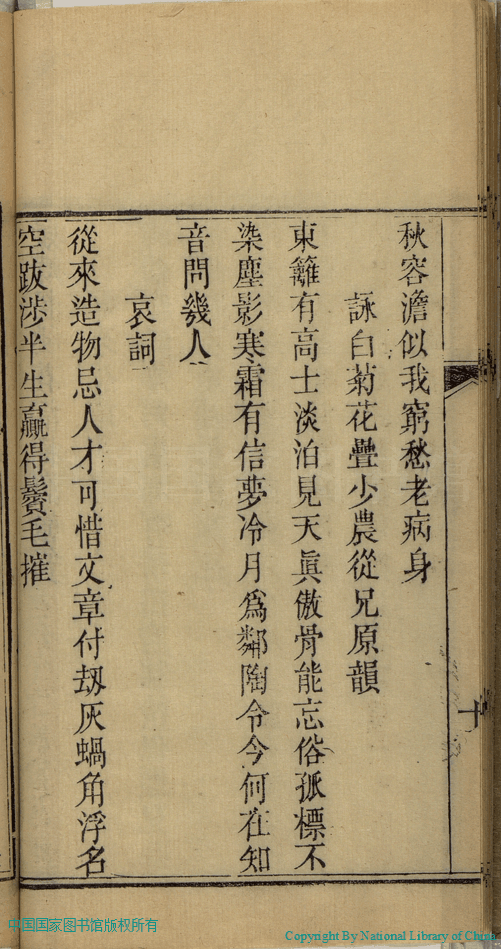 秋容澹似我窮愁老病身
詠白菊花疊少農從兄原韻
東籬有高士淡泊見天眞傲骨能忘俗孤標不
染塵影寒霜有信夢冷月爲鄰陶令今何在知
音問幾人
哀詞
從來造物忌人才可惜文章付刼灰蝸角浮名
空跋涉半生贏得鬢毛摧
十
中国国家图书馆版权所有
Copyright By National Library of China